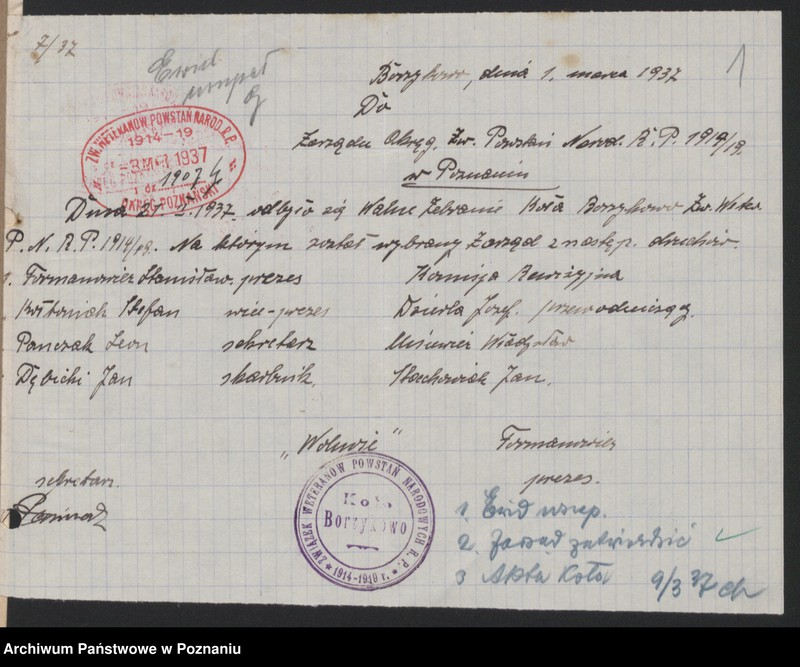 7/37
1
Ewid
uzupeł
Borzykowo, dnia 1. marca 1937
Do
Zarządu Okręg. Zw. Powstań Narod. R. P. 1914/19.
w Poznaniu
ZW. WETERANÓW POWSTAŃ NAROD. R.P.
1914-19
-3 MAR 1937
L. dz. 1907
OKRĘG POZNAŃSKI
Dnia 1937. odbyło się Walne Zebranie Koła Borzykowo Zw. Weter.
P. N. R. P. 1914/19. Na którym został wybrany Zarząd z następ. druchów.
1. Furmanowicz Stanisław. prezes Komisja Rewizyjna
Stefan wice-prezes Józef. przewodniczący.
Panczak Leon sekretarz Misiewicz Władysław
Dębicki Jan skarbnik. Stachowiak Jan.
„Wolność“ Furmanowicz
sekretarz. prezes.
ZWIĄZEK WETERANÓW POWSTAŃ NARODOWYCH R. P.
Koło
Borzykowo
* 1914-1919 r. *
1. Ewid uzup.
2. Zarząd zatwierdzić
3 Akta Koła 9/3 37
Archiwum Państwowe w Poznaniu